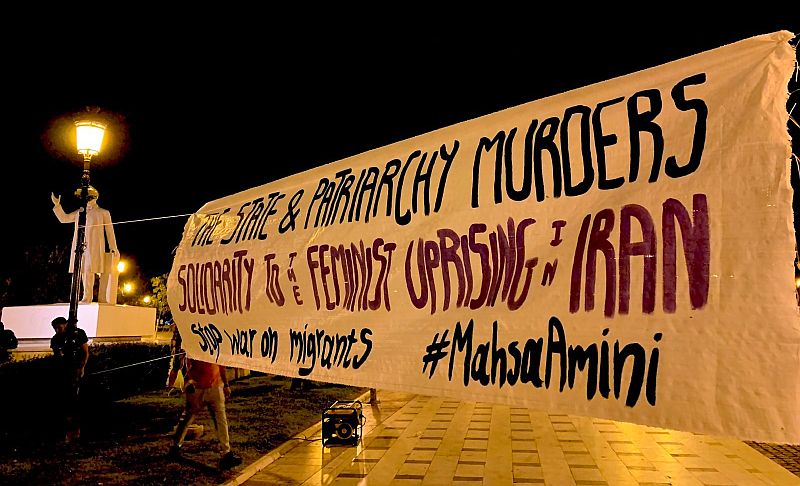 THE STATE & PATRIARCHY MURDERS
SOLIDARITY TO THE FEMINIST UPRISING IN IRAN
Stop war on migrants #MahsaAmini